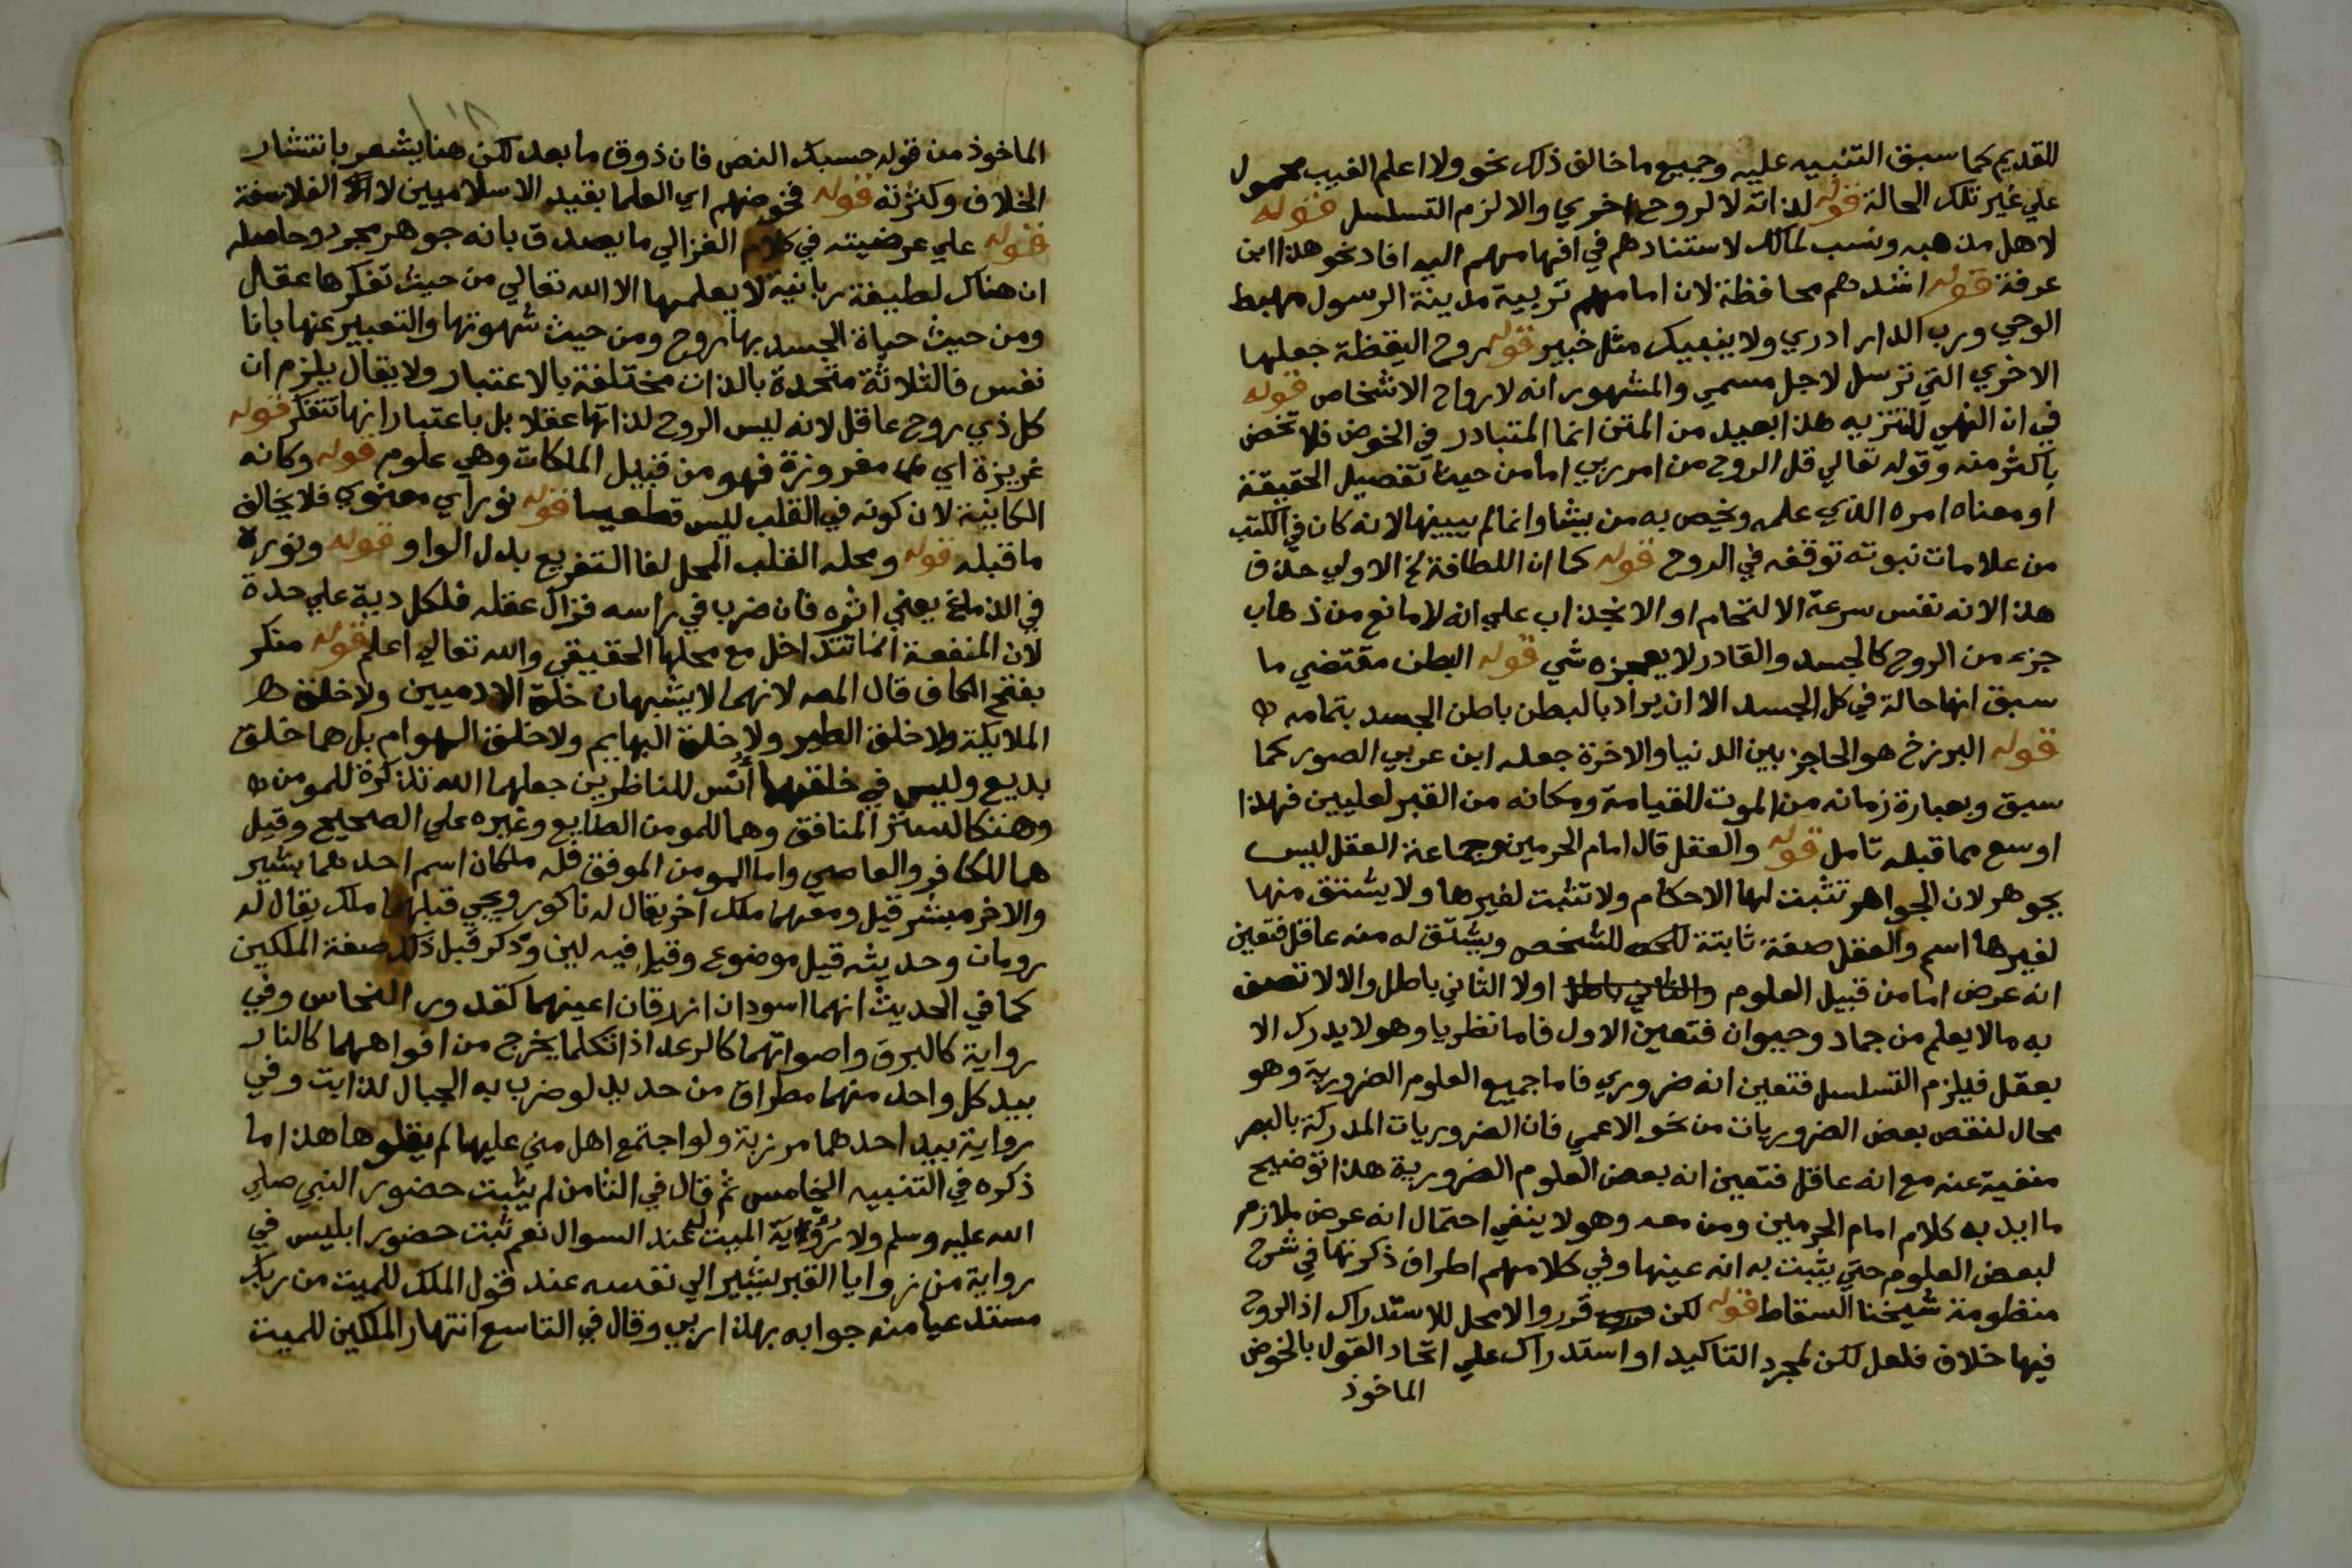 للقديم كما سبق التنبيه عليه وجميع ما خالف ذلك نحو ولا اعلم الغيب محمول
علي غير تلك الحالة قوله لذاته لا لروح اخري والا لزم التسلسل قوله
لاهل مذهبه ونسب لمالك لاستنادهم في افهامهم اليه افاد نحو هذا ابن
عرفة قوله اشدهم محافظة لان امامهم تربية مدينة الرسول مهبط
الوحي ورب الدار ادري ولا ينبيك مثل خبير قوله روح اليقظة جعلها
الاخري التي ترسل لاجل مسمي والمشهور انه لارواح الاشخاص قوله
في ان النهي للتنزيه هذا بعيد من المتن انما المتبادر في الخوض فلا تخض
باكثر منه وقوله تعالي قل الروح من امر ربي اما من حيث تفصيل الحقيقة
او معناه امره الذي علمه ويخص به من يشا وانما لم يبينها لانه كان في الكتب
من علامات نبوته توقفه في الروح قوله كما ان اللطافة لخ الاولي حذف
هذا لانه نفس سرعة الالتحام او الانجذاب علي انه لا مانع من ذهاب
جزء من الروح كالجسد والقادر لا يعجزه شي قوله البطن مقتضي ما
سبق انها حالة في كل الجسد الا ان يراد بالبطن باطن الجسد بتمامه
قوله البرزخ هو الحاجز بين الدنيا والاخرة جعله ابن عربي الصور كما
سبق وبعبارة زمانه من الموت للقيامة ومكانه من القبر لعليين فهذا
اوسع مما قبله تامل قوله والعقل قال امام الحرمين وجماعة العقل ليس
بجوهر لان الجواهر تثبت لها الاحكام ولا تثبت لغيرها ولا يشتق منها
لغيرها اسم والعقل صفة ثابتة للشخص ويشتق له منه عاقل فتعين
انه عرض اما من قبيل العلوم والثاني باطل اولا الثاني باطل والا لاتصف
به مالا يعلم من جماد وحيوان فتعين الاول فاما نظريا وهو لا يدرك الا
بعقل فيلزم التسلسل فتعين انه ضروري فاما جميع العلوم الضرورية وهو
محال لنقص بعض الضروريات من نحو الاعمي فان الضروريات المدركة بالبصر
منفية عنه مع انه عاقل فتعين انه بعض العلوم الضرورية هذا توضيح
ما ايد به كلام امام الحرمين ومن معه وهو لا ينفي احتمال انه عرض ملازم
لبعض العلوم حتي يثبت به انه عينها وفي كلامهم اطراف ذكرتها في شرح
منظومة شيخنا السقاط قوله لكن قرروا لا محل للاستدراك اذ الروح
فيها خلاف فلعل لكن لمجرد التاكيد او استدراك علي اتحاد القول بالخوض
الماخوذ
الماخوذ من قوله حسبك النص فان ذوق ما بعد لكن هنا يشعر بانتشار
الخلاف وكثرته قوله فخوضهم اي العلما بقيد الاسلاميين لا الفلاسفة
قوله علي عرضيته في كلام الغزالي ما يصدق بانه جوهر مجرد وحاصله
ان هناك لطيفة ربانية لا يعلمها الا الله تعالي من حيث تفكرها عقل
ومن حيث حياة الجسد بها روح ومن حيث شهوتها والتعبير عنها بانا
نفس فالثلاثة متحدة بالذات مختلفة بالاعتبار ولا يقال يلزم ان
كل ذي روح عاقل لانه ليس الروح لذاتها عقلا بل باعتبار انها تتفكر قوله
غريزة اي مغروزة فهو من قبيل الملكات وهي علوم قوله وكانه
الكانية لان كونه في القلب ليس قطعيا قوله نور اي معنوي فلا يخالف
ما قبله قوله ومحله القلب المحل لفا التفريع بدل الواو قوله ونوره
في الدماغ يعني اثره فان ضرب في راسه فزال عقله فلكل دية علي حدة
لان المنفعة انما تتداخل مع محلها الحقيقي والله تعالي اعلم قوله منكر
بفتح الكاف قال المص لانهما لا يشبهان خلق الادميين ولا خلق
الملايكة ولا خلق الطير ولا خلق البهايم ولا خلق الهوام بل هما خلق
بديع وليس في خلقتهما انس للناظرين جعلهما الله تذكرة للمومن
وهتكا لستر المنافق وهما للمومن الطايع وغيره علي الصحيح وقيل
هما للكافر والعاصي واما المومن الموفق فله ملكان اسم احدهما بشير
والاخر مبشر قيل ومعهما ملك اخر يقال له ناكور ويجي قبلهما ملك يقال له
رومان وحديثه قيل موضوع وقيل فيه لين وذكر قبل ذلك صفة الملكين
كما في الحديث انهما اسودان ازرقان اعينهما كقدور النحاس وفي
رواية كالبرق واصواتهما كالرعد اذا تكلما يخرج من افواههما كالنار
بيد كل واحد منهما مطراق من حديد لو ضرب به الجبال لذابت وفي
رواية بيد احدهما مرزبة ولو اجتمع اهل مني عليها لم يقلوها هذا ما
ذكره في التنبيه الخامس ثم قال في الثامن لم يثبت حضور النبي صلي
الله عليه وسلم ولا رؤية الميت له عند السوال نعم ثبت حضور ابليس في
رواية من زوايا القبر يشير الي نفسه عند قول الملك للميت من ربك
مستدعيا منه جوابه بهذا ربي وقال في التاسع انتهار الملكين للميت